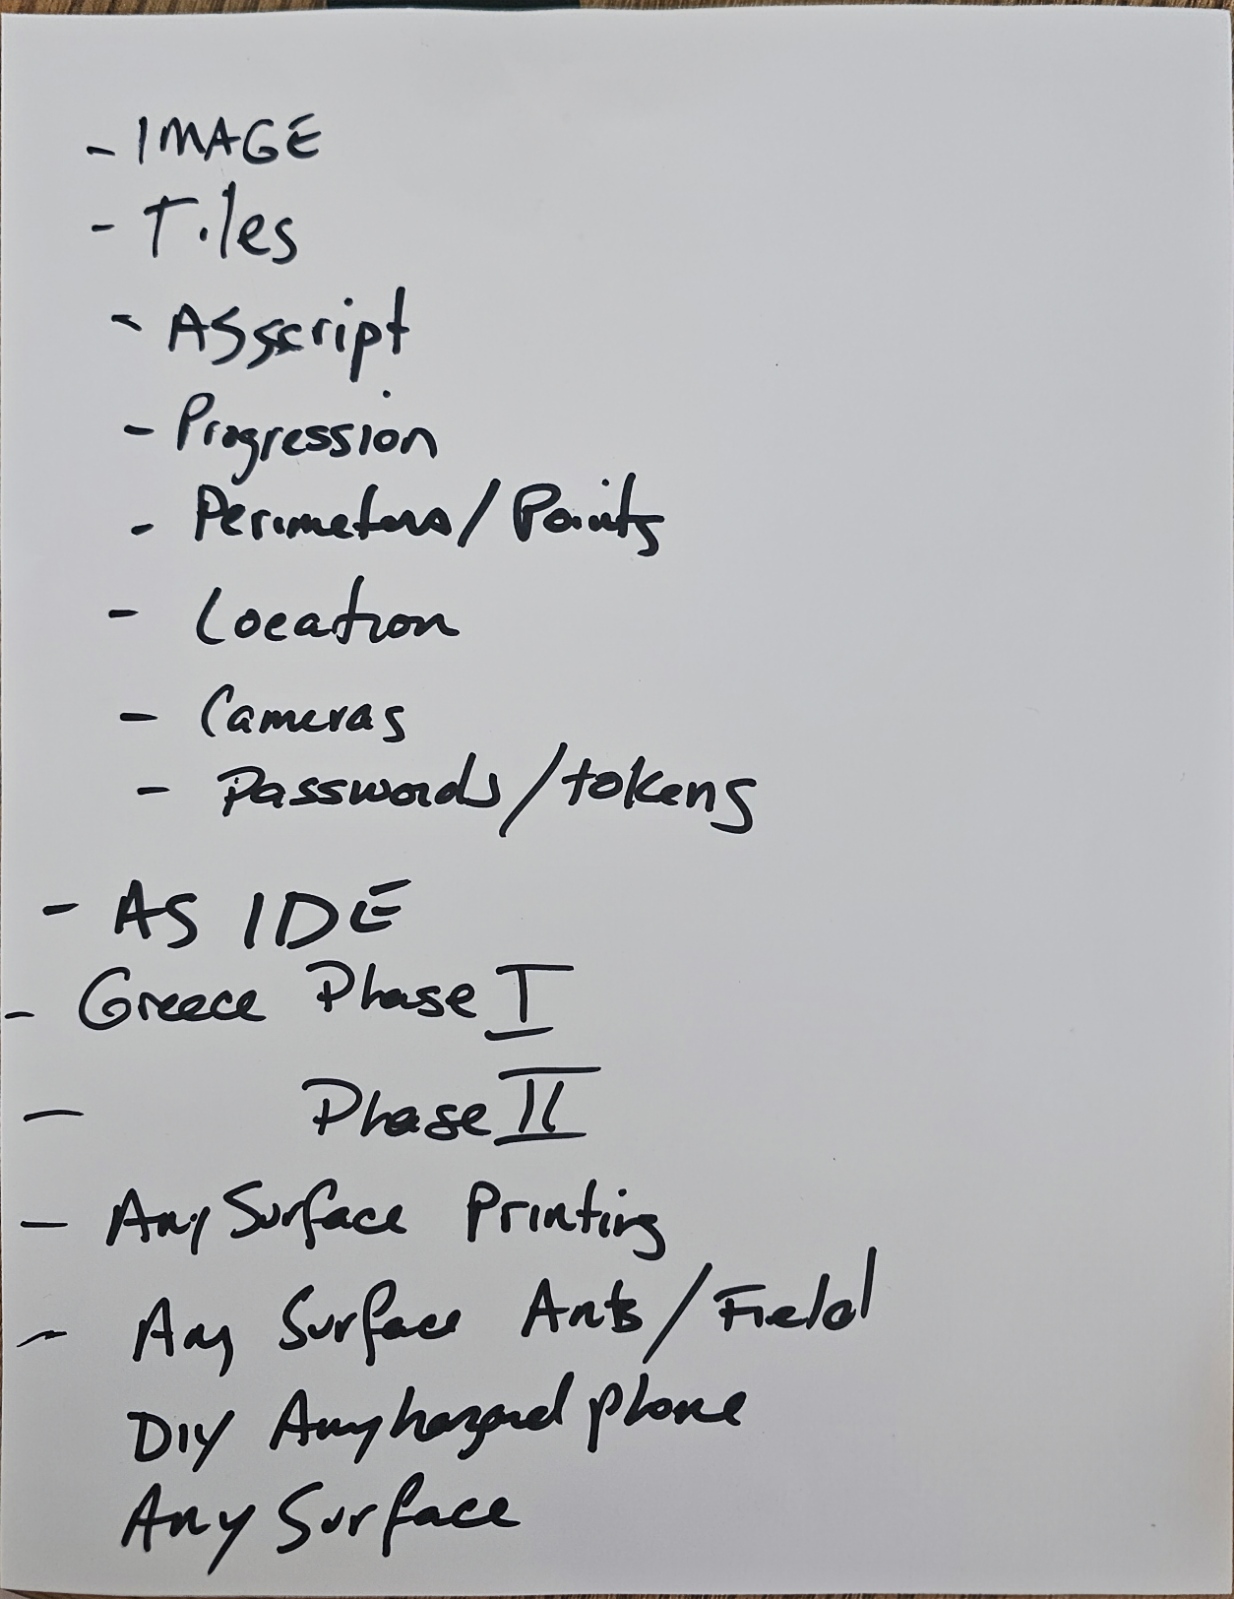 - IMAGE
- Tiles
- ASscript
- Progression
- Perimeters/Points
- Location
- Cameras
- Passwords/tokens
- AS IDE
- Greece Phase I
- Phase II
- Any Surface Printing
- Any Surface Ants/Field
DIY Anyhazard phone
Any Surface